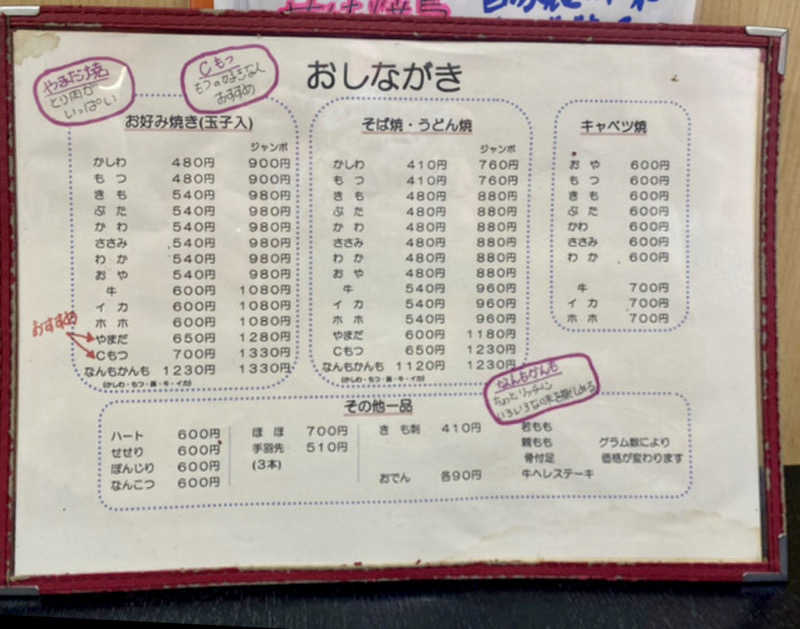 やまだ焼
とり肉が
いっぱい
Cもつ
もつの好きな人
おすすめ
おしながき
お好み焼き(玉子入)
ジャンボ
かしわ 480円 900円
もつ 480円 900円
きも 540円 980円
ぶた 540円 980円
かわ 540円 980円
ささみ 540円 980円
わか 540円 980円
おや 540円 980円
牛 600円 1080円
イカ 600円 1080円
ホホ 600円 1080円
おすすめ
やまだ 650円 1280円
Cもつ 700円 1330円
なんもかんも 1230円 1330円
そば焼・うどん焼
ジャンボ
かしわ 410円 760円
もつ 410円 760円
きも 480円 880円
ぶた 480円 880円
かわ 480円 880円
ささみ 480円 880円
わか 480円 880円
おや 480円 880円
牛 540円 960円
イカ 540円 960円
ホホ 540円 960円
やまだ 600円 1180円
Cもつ 650円 1230円
なんもかんも 1120円 1230円
キャベツ焼
おや 600円
もつ 600円
きも 600円
ぶた 600円
かわ 600円
ささみ 600円
わか 600円
牛 700円
イカ 700円
ホホ 700円
なんもかんも
ちょっとリッチに
いろいろな味を楽しめる
その他一品
ハート 600円
せせり 600円
ぼんじり 600円
なんこつ 600円
ほほ 700円
手羽先 510円
(3本)
きも刺 410円
おでん 各90円
若もも
親もも
骨付足
牛ヘレステーキ
グラム数により
価格が変わります